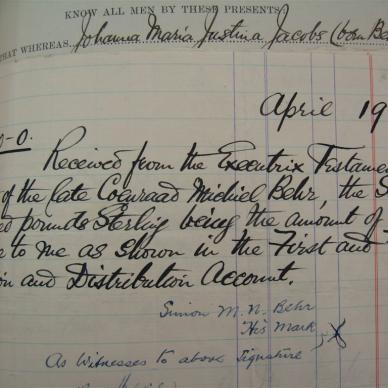 KNOW ALL MEN BY THESE PRESENTS
THAT WHEREAS Johanna Maria Justina Jacobs (born Be
April 19
0-0. Received from the Executrix Testame
of the late Coenraad Michiel Behr, the S
pounds Sterling being the amount of
to me as shown in the First and
ion and Distribution Account.
Simon M. N. Behr
His Mark
X
As Witnesses to above Signature